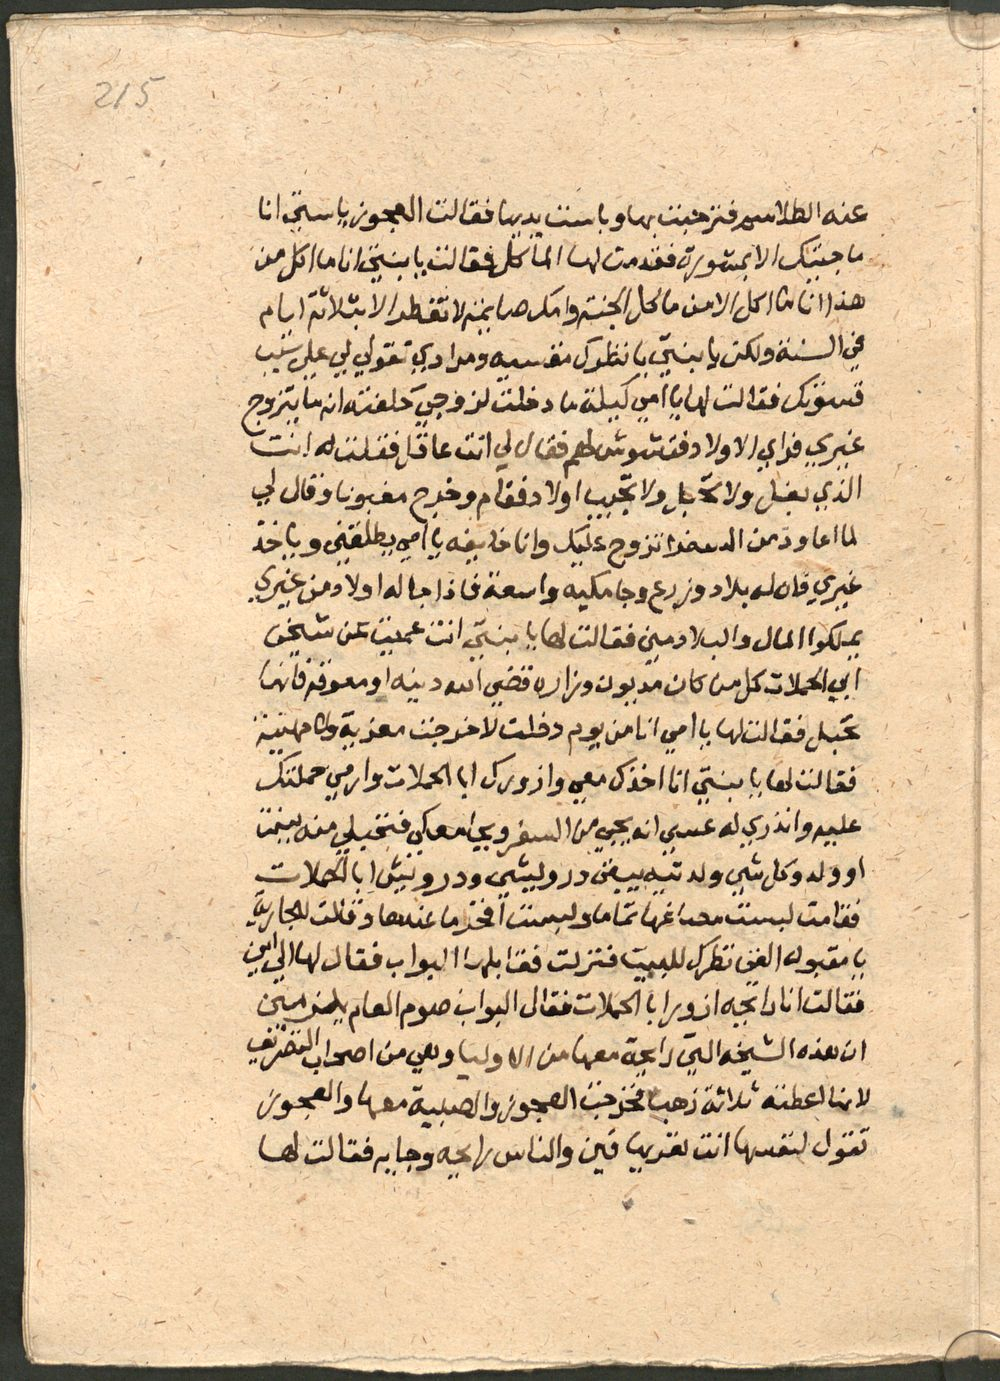 215
عنه الطلاسم فترحبت بها وباست يديها فقالت العجوز يا ستي انا
ما جيتك الا بمشورة فقدمت لها الماكل فقالت يا بنتي انا ما اكل من
هذا انا ما اكل الا من ماكل الجنة وامك صايمة لا تفطر الا ثلاثة ايام
في السنة ولكن يا بنتي يا نظرك مقسيه ومرادي تقولي لي على سبب
قسوتك فقالت لها يا امي ليلة ما دخلت لزوجي حلفته انه ما يتزوج
غيري فراي الاولاد فتشوش لهم فقال لي انتي عاقر فقلت له انت
الذي بغل ولا تحبل ولا تجيب اولاد فقام وخرج مغبونا وقال لي
لما اعاود من السفر اتزوج عليك وانا خايفه يا امي يطلقني وياخذ
غيري فان له بلاد وزرع وجامكيه واسعة فاذا جا له اولاد من غيري
يملكوا المال والبلاد مني فقالت لها يا بنتي انت عميتي عن شيخي
ابي الحملات كل من كان مديون وزاره قضي الله دينه او معوقه فانها
تحبل فقالت لها يا امي انا من يوم دخلت لا خرجت معزية ولا مهنية
فقالت لها يا بنتي انا اخذك معي وازورك ابا الحملات وارمي حملتك
عليه وانذري له عسي انه يجي من السفر ويجامعكي فتحبلي منه ببنت
او ولد وكل شي ولدتيه يبقى درويشي ودرويش ابا الحملات
فقامت لبست مصاغها تماما ولبست افخر ما عندها وقالت للجارية
يا مقبوله القي نظرك للبيت فنزلت فقابلها البواب فقال لها الي اين
فقالت انا رايحه ازور ابا الحملات فقال البواب صوم العام يلزمني
ان هذه الشيخه التي رايحة معها من الاوليا وهي من اصحاب التصريف
لانها اعطته ثلاثة ذهب فخرجت العجوز والصبية معها والعجوز
تقول لنفسها انت تعريها فين والناس رايحه وجايه فقالت لها